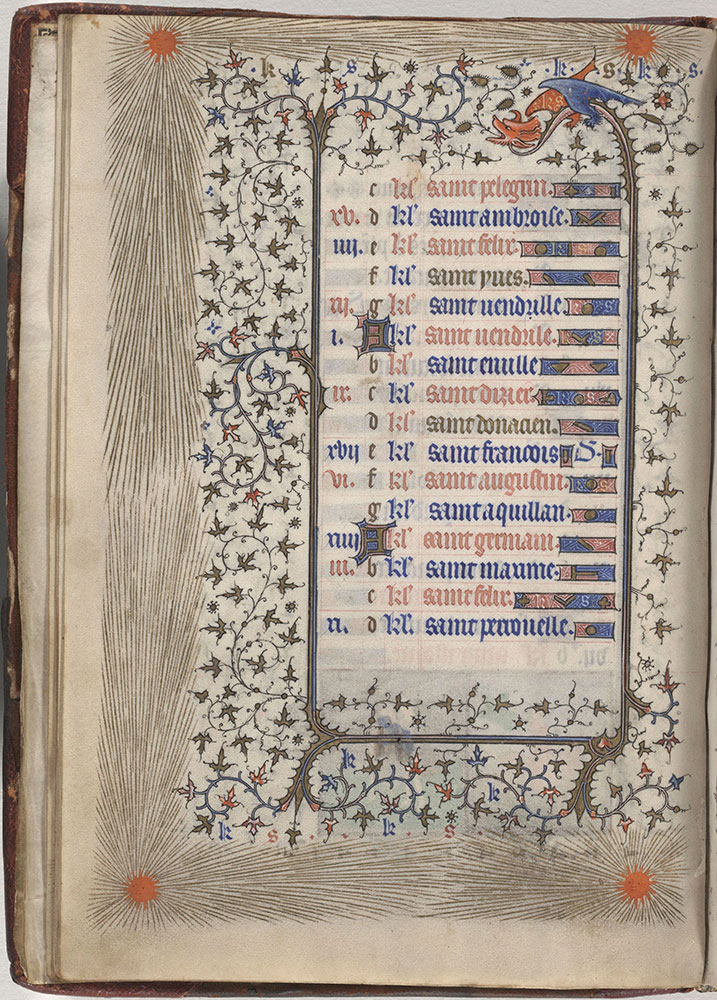 k s k s k s
ks
c kl' saint pelegrin.
xv. d kl' saint ambroise.
iiij. e kl' saint felix.
f kl' saint yues.
xij. g kl' saint uendrille.
i. A kl' saint uendrile.
b kl' saint emille
ix. c kl' saint dizier.
d kl' saint donacien.
xvij e kl' saint francois S
vi. f kl' saint augustin.
g kl' saint aquillan.
xiiij A kl' saint germain.
iii. b kl' saint maxime.
c kl' saint felix.
xi. d kl' saint perronelle.
k
k
k s k s